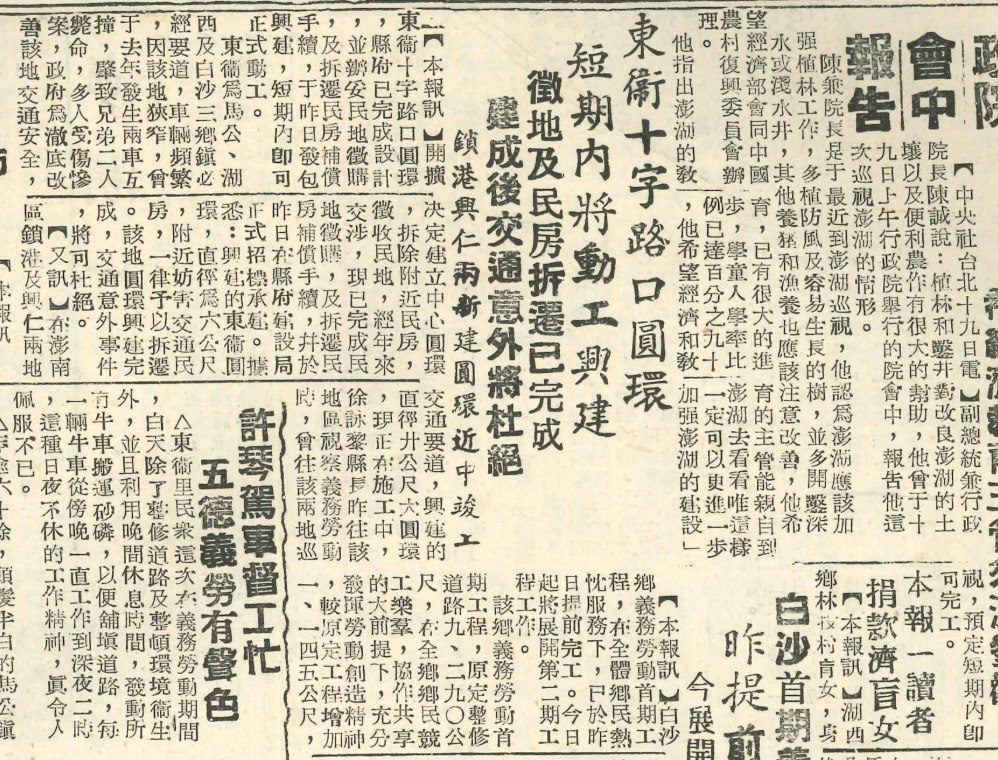 政院
會中
報告
【中央社台北十九日電】副總統兼行政
院長陳誠說：植林和鑿井對改良澎湖的土
壤以及便利農作有很大的幫助，他曾于十
九日上午行政院舉行的院會中，報告他這
次巡視澎湖的情形。
陳兼院長是于最近到澎湖巡視，他認爲澎湖應該加
强植林工作，多植防風及容易生長的樹，並多開鑿深
水或淺水井，其他養猪和漁養也應該注意改善，他希
望經濟部會同中國
農村復興委員會辦
理。
他指出澎湖的敎
育，已有很大的進
步，學童人學率比
例已達百分之九十
，他希望經濟和敎
育的主管能親自到
澎湖去看看唯這樣
一定可以更進一步
加强澎湖的建設」
東衞十字路口圓環
短期內將動工興建
徵地及民房拆遷已完成
建成後交通意外將杜絕
鎖港興仁兩新建圓環近中竣工
【本報訊】開擴
東衞十字路口圓環
，縣府已完成設計
，並辦安民地徵購
及拆遷民房補償
手續，于昨日發包
興建，短期內卽可
正式動工。
東衞爲馬公、湖
西及白沙三鄉鎮必
經要道，車輛頻繁
，因該地狹窄，曾
于去年發生兩車互
撞，肇致兄弟二人
斃命，多人受傷慘
案，政府爲澈底改
善該地交通安全，
决定建立中心圓環
，拆除附近民房，
徵收民地，經年來
交涉，現已完成民
地徵購，及拆遷民
房補償手續，幷於
昨日在縣府建設局
正式招標承建。據
悉：興建的東衞圓
環，直徑爲六公尺
，附近妨害交通民
房，一律予以拆遷
。該地圓環興建完
成，交通意外事件
，將可杜絕。
【又訊】在澎南
區鎖港及興仁兩地
交通要道，興建的
直徑廿公尺大圓環
，現正在施工中，
徐詠黎縣長昨往該
地區視察義務勞動
時，曾往該兩地巡
視，預定短期內卽
可完工。
本報一讀者
捐款濟盲女
【本報訊】湖西
鄉林投村盲女，
白沙首期義
昨提前
今展開
【本報訊】白沙
鄉義務勞動首期工
程，在全體鄉民熱
忱服務下，已於昨
日提前完工。今日
起將展開第二期工
程工作。
該鄉義務勞動首
期工程，原定整修
道路九、二九〇公
尺，在全鄉鄉民競
工樂羣，協作共享
的大前提下，充分
發揮勞動創造精神
，較原定工程增加
一、一四五公尺，
許琴駕車督工忙
五德義勞有聲色
△東衞里民衆這次在義務勞動期間
，白天除了整修道路及整頓環境衞生
外，並且利用晚間休息時間，發動所
有牛車搬運砂磷，以便舖塡道路，每
一輛牛車從傍晚一直工作到深夜二時
，這種日夜不休的工作精神，眞令人
佩服不已。
六十餘，頭髮半白的馬公鎭